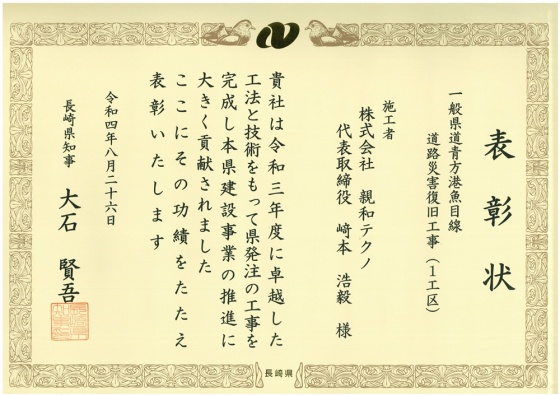 表彰状
一般県道青方港魚目線
道路災害復旧工事（1工区）
施工者
株式会社 親和テクノ
代表取締役 﨑本 浩毅 様
貴社は令和三年度に卓越した
工法と技術をもって県発注の工事を
完成し本県建設事業の推進に
大きく貢献されました
ここにその功績をたたえ
表彰いたします
令和四年八月二十六日
長崎県知事 大石 賢吾
長崎県